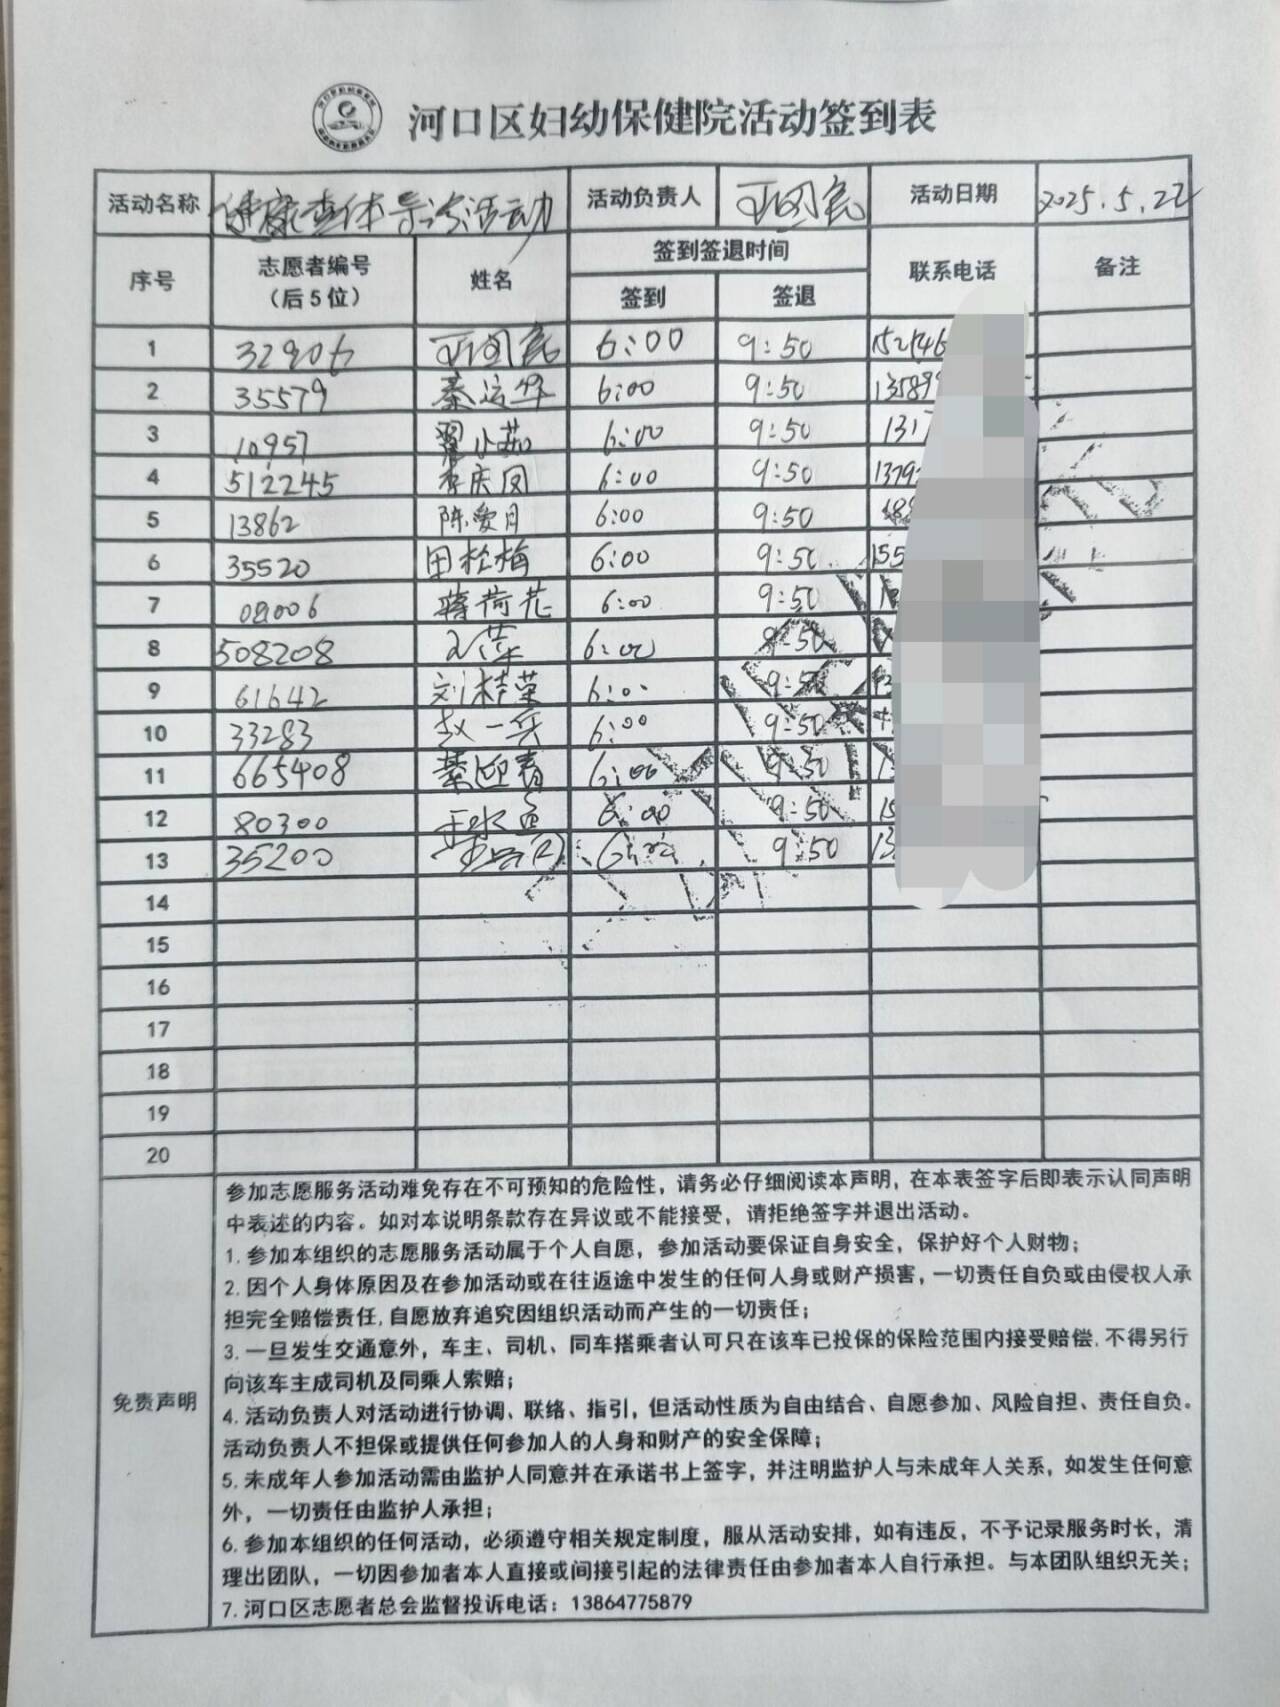 河口区妇幼保健院活动签到表
活动名称 健康查体导诊活动 活动负责人 活动日期 2025.5.22
序号 志愿者编号（后5位） 姓名 签到签退时间 联系电话 备注
签到 签退
1 32906 6:00 9:50 152146
2 35579 6:00 9:50 13589
3 10957 翟小茹 6:00 9:50 131
4 512245 李庆凤 6:00 9:50 1379
5 13862 陈爱月 6:00 9:50
6 35520 田松梅 6:00 9:50 155
7 蒋荷花 6:00 9:50
8 508208 6:00 9:50
9 61642 刘桂荣 6:00 9:50
10 33283 赵一兵 6:00 9:50
11 665408 綦迎春 6:00 9:50
12 80300 6:00 9:50
13 35200 9:50 13
14
15
16
17
18
19
20
免责声明
参加志愿服务活动难免存在不可预知的危险性，请务必仔细阅读本声明，在本表签字后即表示认同声明
中表述的内容。如对本说明条款存在异议或不能接受，请拒绝签字并退出活动。
1.参加本组织的志愿服务活动属于个人自愿，参加活动要保证自身安全，保护好个人财物；
2.因个人身体原因及在参加活动或在往返途中发生的任何人身或财产损害，一切责任自负或由侵权人承
担完全赔偿责任,自愿放弃追究因组织活动而产生的一切责任；
3.一旦发生交通意外，车主、司机、同车搭乘者认可只在该车已投保的保险范围内接受赔偿,不得另行
向该车主成司机及同乘人索赔；
4.活动负责人对活动进行协调、联络、指引，但活动性质为自由结合、自愿参加、风险自担、责任自负。
活动负责人不担保或提供任何参加人的人身和财产的安全保障；
5.未成年人参加活动需由监护人同意并在承诺书上签字，并注明监护人与未成年人关系，如发生任何意
外，一切责任由监护人承担；
6.参加本组织的任何活动，必须遵守相关规定制度，服从活动安排，如有违反，不予记录服务时长，清
理出团队，一切因参加者本人直接或间接引起的法律责任由参加者本人自行承担。与本团队组织无关；
7.河口区志愿者总会监督投诉电话：13864775879